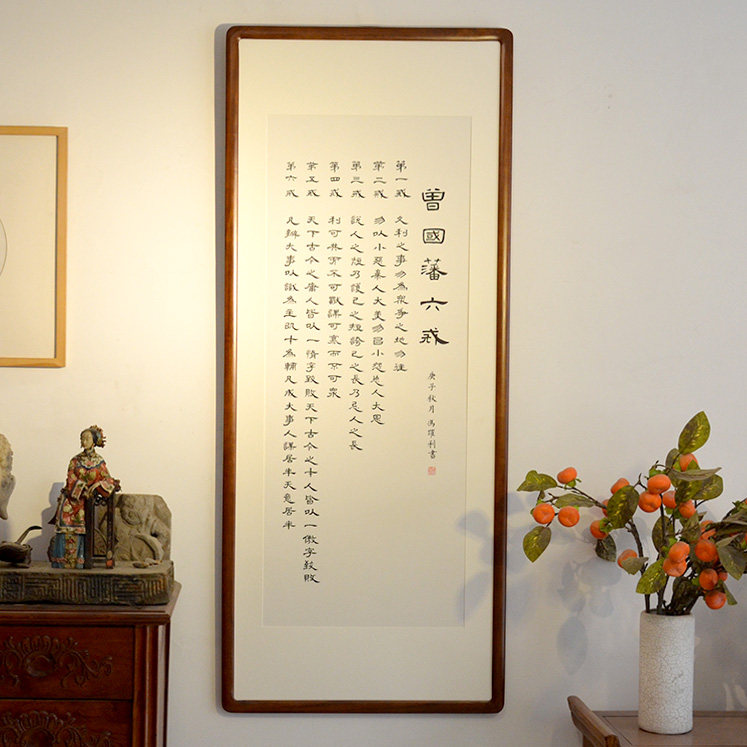 曾國藩六戒
庚子秋月 馮利書
第一戒 久利之事勿為眾爭之地勿往
第二戒 勿以小惡棄人大美勿以小怨忘人大恩
第三戒 說人之短乃護己之短誇己之長乃忌人之長
第四戒 利可共而不可獨謀可寡而不可眾
第五戒 天下古今之庸人皆以一惰字致敗天下古今之才人皆以一傲字致敗
第六戒 凡辦大事以識為主以才為輔凡成大事人謀居半天意居半